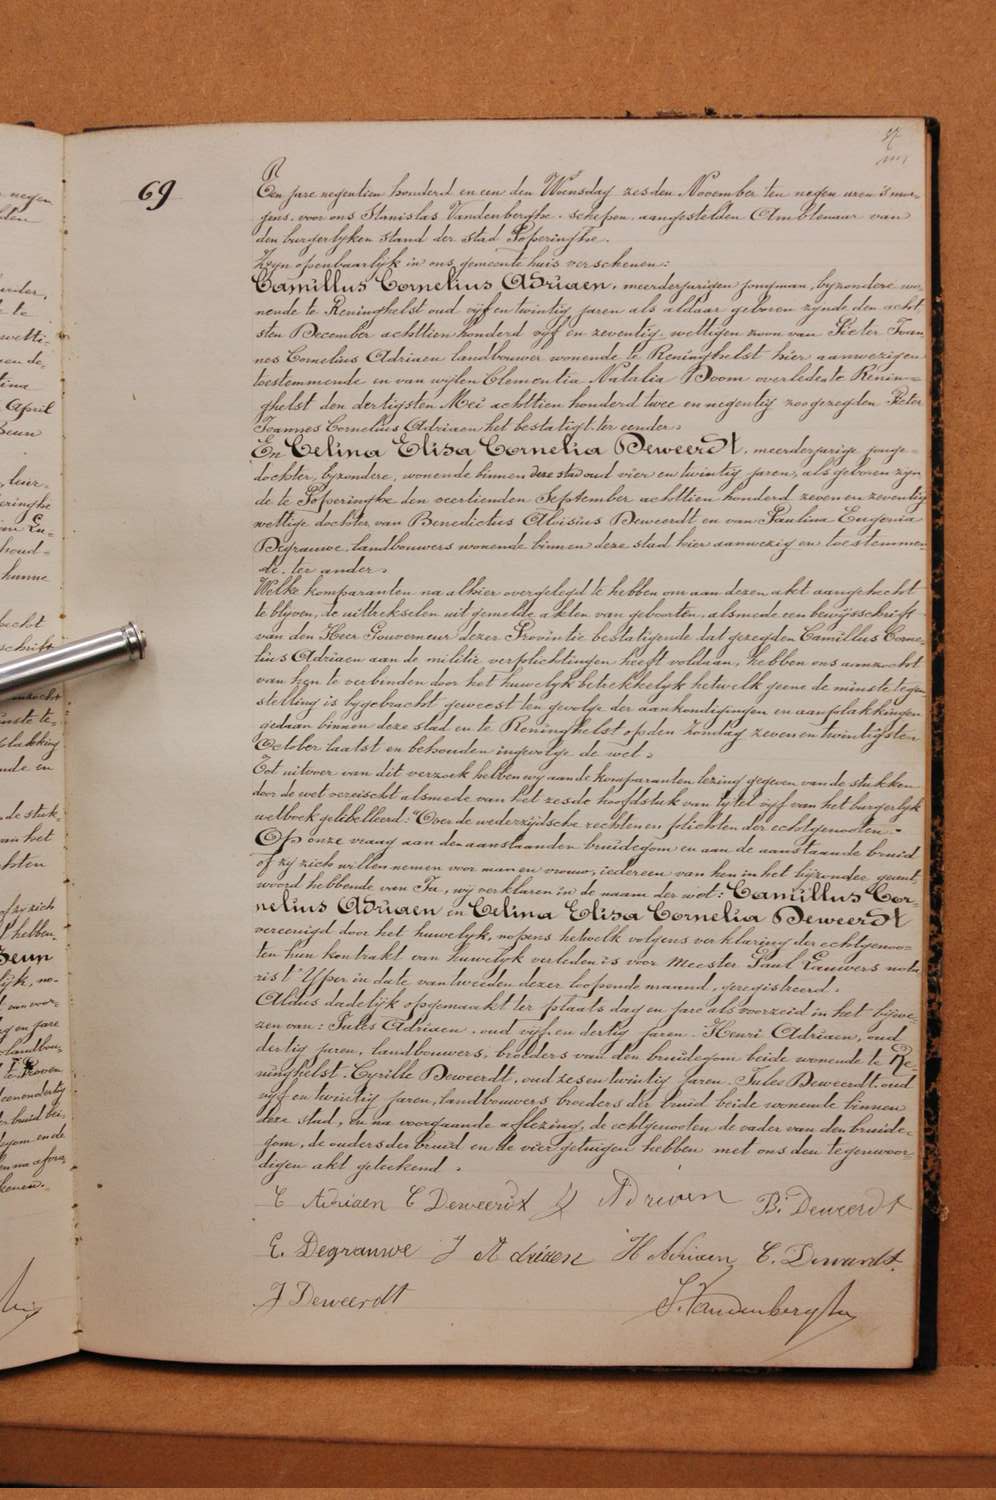 69
Een jare negentien honderd en een den Woensdag zesden November ten negen uren 's mor-
gens, voor ons Stanislas Vandenberghe, schepen, aangestelden Ambtenaar van
den burgerlyken stand der stad Poperinghe.
Zyn openbaarlyk in ons gemeente huis verschenen:
Camillus Cornelius Adriaen, meerderjarigen jongman, byzondere wo-
nende te Reninghelst oud vyf en twintig jaren als aldaar geboren zynde den acht
sten December achttien honderd vyf en zeventig, wettigen zoon van Pieter Joan-
nes Cornelius Adriaen landbouwer wonende te Reninghelst hier aanwezig en
toestemmende en van wylen Clementia Natalia Boom overleden te Renin-
ghelst den dertigsten Mei achttien honderd twee en negentig zoo gezegden Pieter
Joannes Cornelius Adriaen het bestatigt, ter eender.
En Celina Elisa Cornelia Deweerdt, meerderjarige jonge-
dochter, byzondere, wonende binnen deze stad oud vier en twintig jaren, als geboren zyn
de te Poperinghe den veertienden September achttien honderd zeven en zeventig
wettige dochter van Benedictus Aloisius Deweerdt en van Paulina Eugenia
Degrauwe, landbouwers wonende binnen deze stad hier aanwezig en toestemmen-
de, ter ander.
Welke komparanten na alhier overgelegd te hebben om aan dezen akt aangehecht
te blyven, de uittrekselen uit gemelde akten van geboorten, alsmede een bewysschrift
van den Heer Gouverneur dezer Provintie bestatigende dat gezegden Camillus Corne-
lius Adriaen aan de militie verplichtingen heeft voldaan, hebben ons aanzocht
van hen te verbinden door het huwelyk betrekkelyk hetwelk geene de minste tegen
stelling is bygebracht geweest ten gevolge der aankondigingen en aanplakkingen
gedaan binnen deze stad en te Reninghelst op den Zondag zeven en twintigsten
October laatst en behouden ingevolge de wet.
Tot uitvoer van dit verzoek hebben wy aan de komparanten lezing gegeven van de stukken
door de wet vereischt alsmede van het zesde hoofdstuk van tytel vyf van het burgerlyk
wetboek gelibelleerd: "Over de wederzydsche rechten en plichten der echtgenooten."
Op onze vraag aan den aanstaanden bruidegom en aan de aanstaande bruid
of zy zich willen nemen voor man en vrouw, iedereen van hen in het byzonder geant
woord hebbende van Ja, wy verklaren in de naam der wet: Camillus Cor-
nelius Adriaen en Celina Elisa Cornelia Deweerdt
vereenigd door het huwelyk, nopens hetwelk volgens verklaring der echtgenoo-
ten hun kontrakt van huwelyk verleden is voor Meester Paul Lauwers nota
rist' Yper in date van tweeden dezer loopende maand, geregistreerd.
Aldus dadelyk opgemaakt ter plaats dag en jare als voorzeid in het bywe-
zen van: Jules Adriaen, oud vyf en dertig jaren, Henri Adriaen, oud
dertig jaren, landbouwers, broeders van den bruidegom beide wonende te Re-
ninghelst. Cyrille Deweerdt, oud zes en twintig jaren, Jules Deweerdt, oud
vyf en twintig jaren, landbouwers broeders der bruid beide wonende binnen
deze stad, en na voorgaande aflezing, de echtgenooten de vader van den bruide-
gom, de ouders der bruid en de vier getuigen hebben met ons den tegenwoor-
digen akt geteekend.
C Adriaen C Deweerdt Adriaen B. Deweerdt
E. Degrauwe J Adriaen H Adriaen C. Deweerdt
J Deweerdt S. Vandenberghe